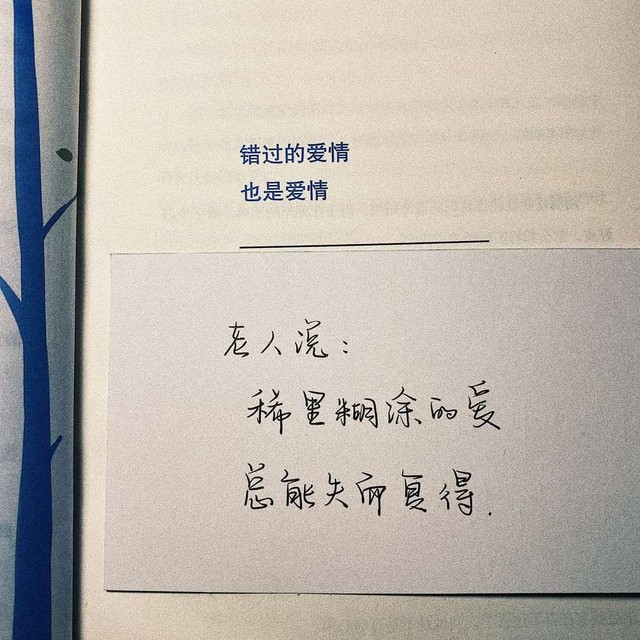 错过的爱情
也是爱情
老人说：
稀里糊涂的爱
总能失而复得.